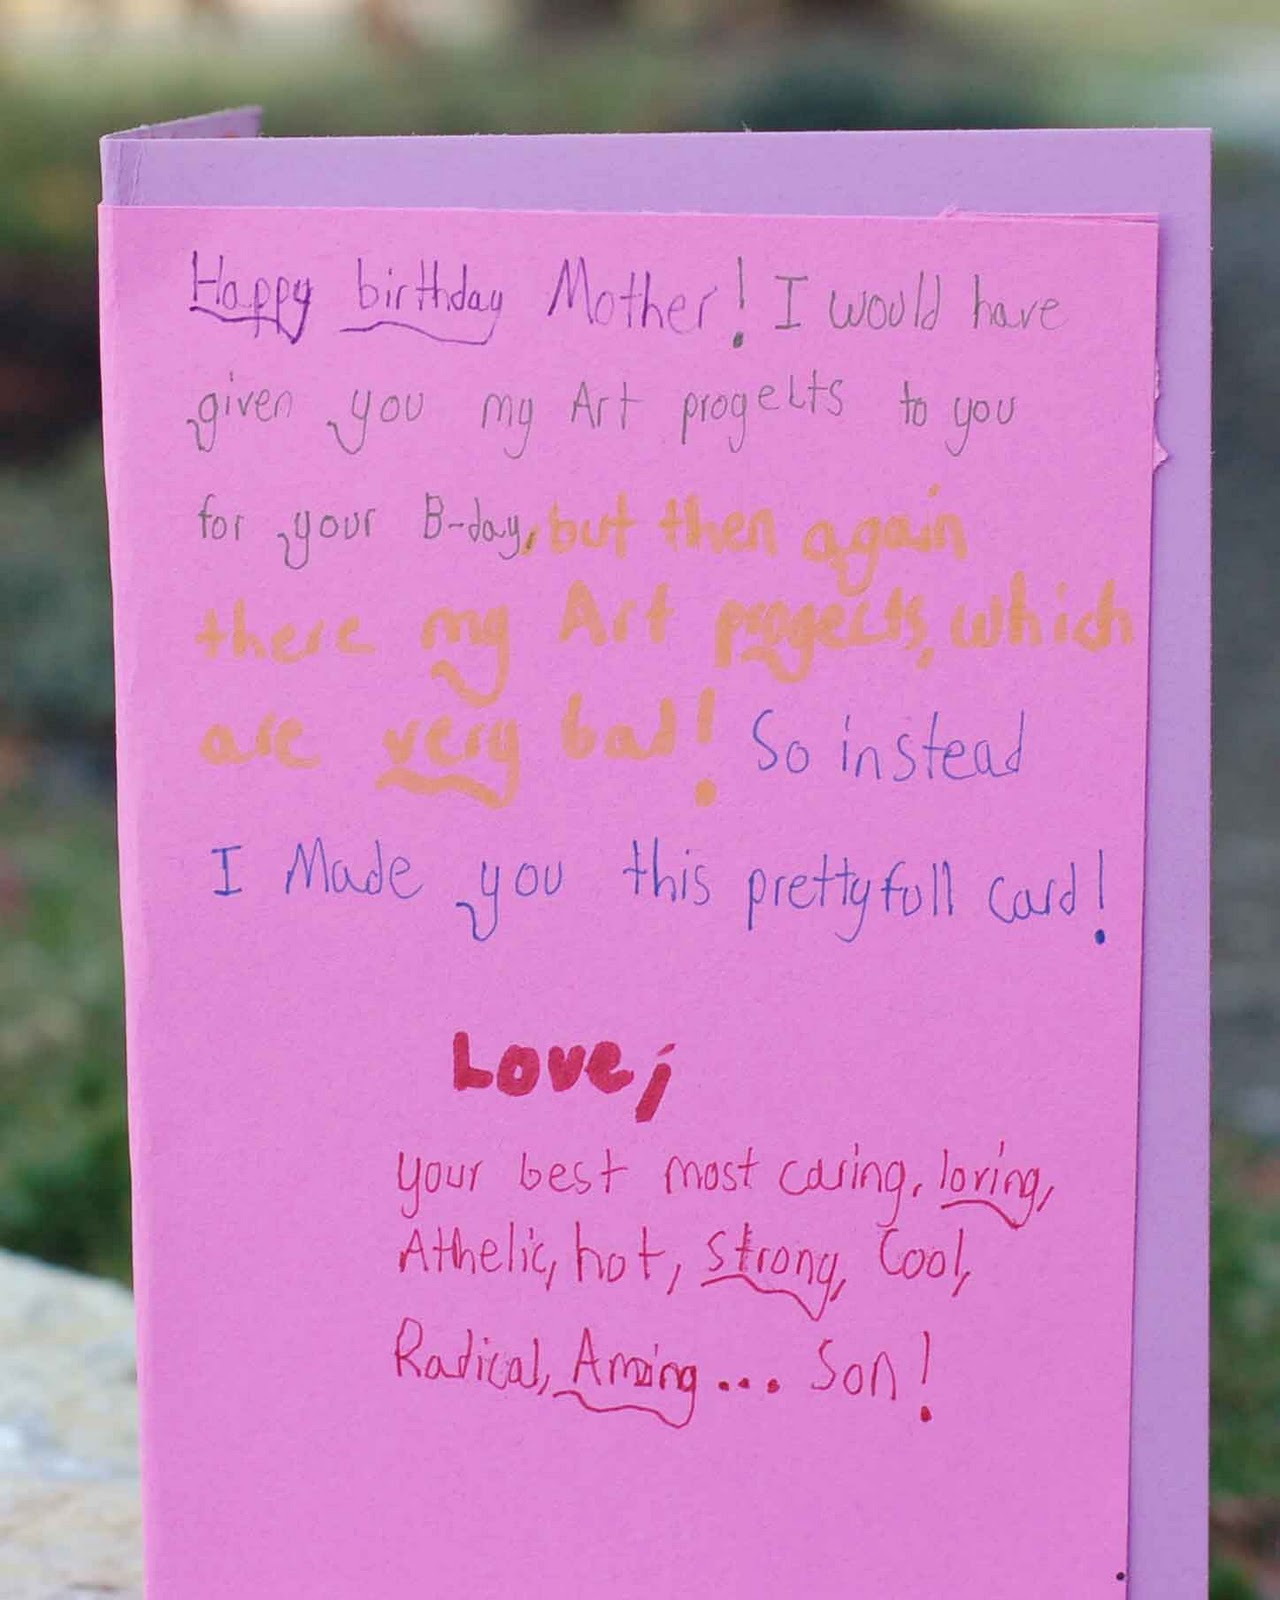 Happy birthday Mother! I would have
given you my Art progects to you
for your B-day, but then again
there my Art progects, which
are very bad! So instead
I Made you this prettyfull card!
Love,
your best most caring, loving,
Athelic, hot, strong, Cool,
Radical, Amzing... Son!